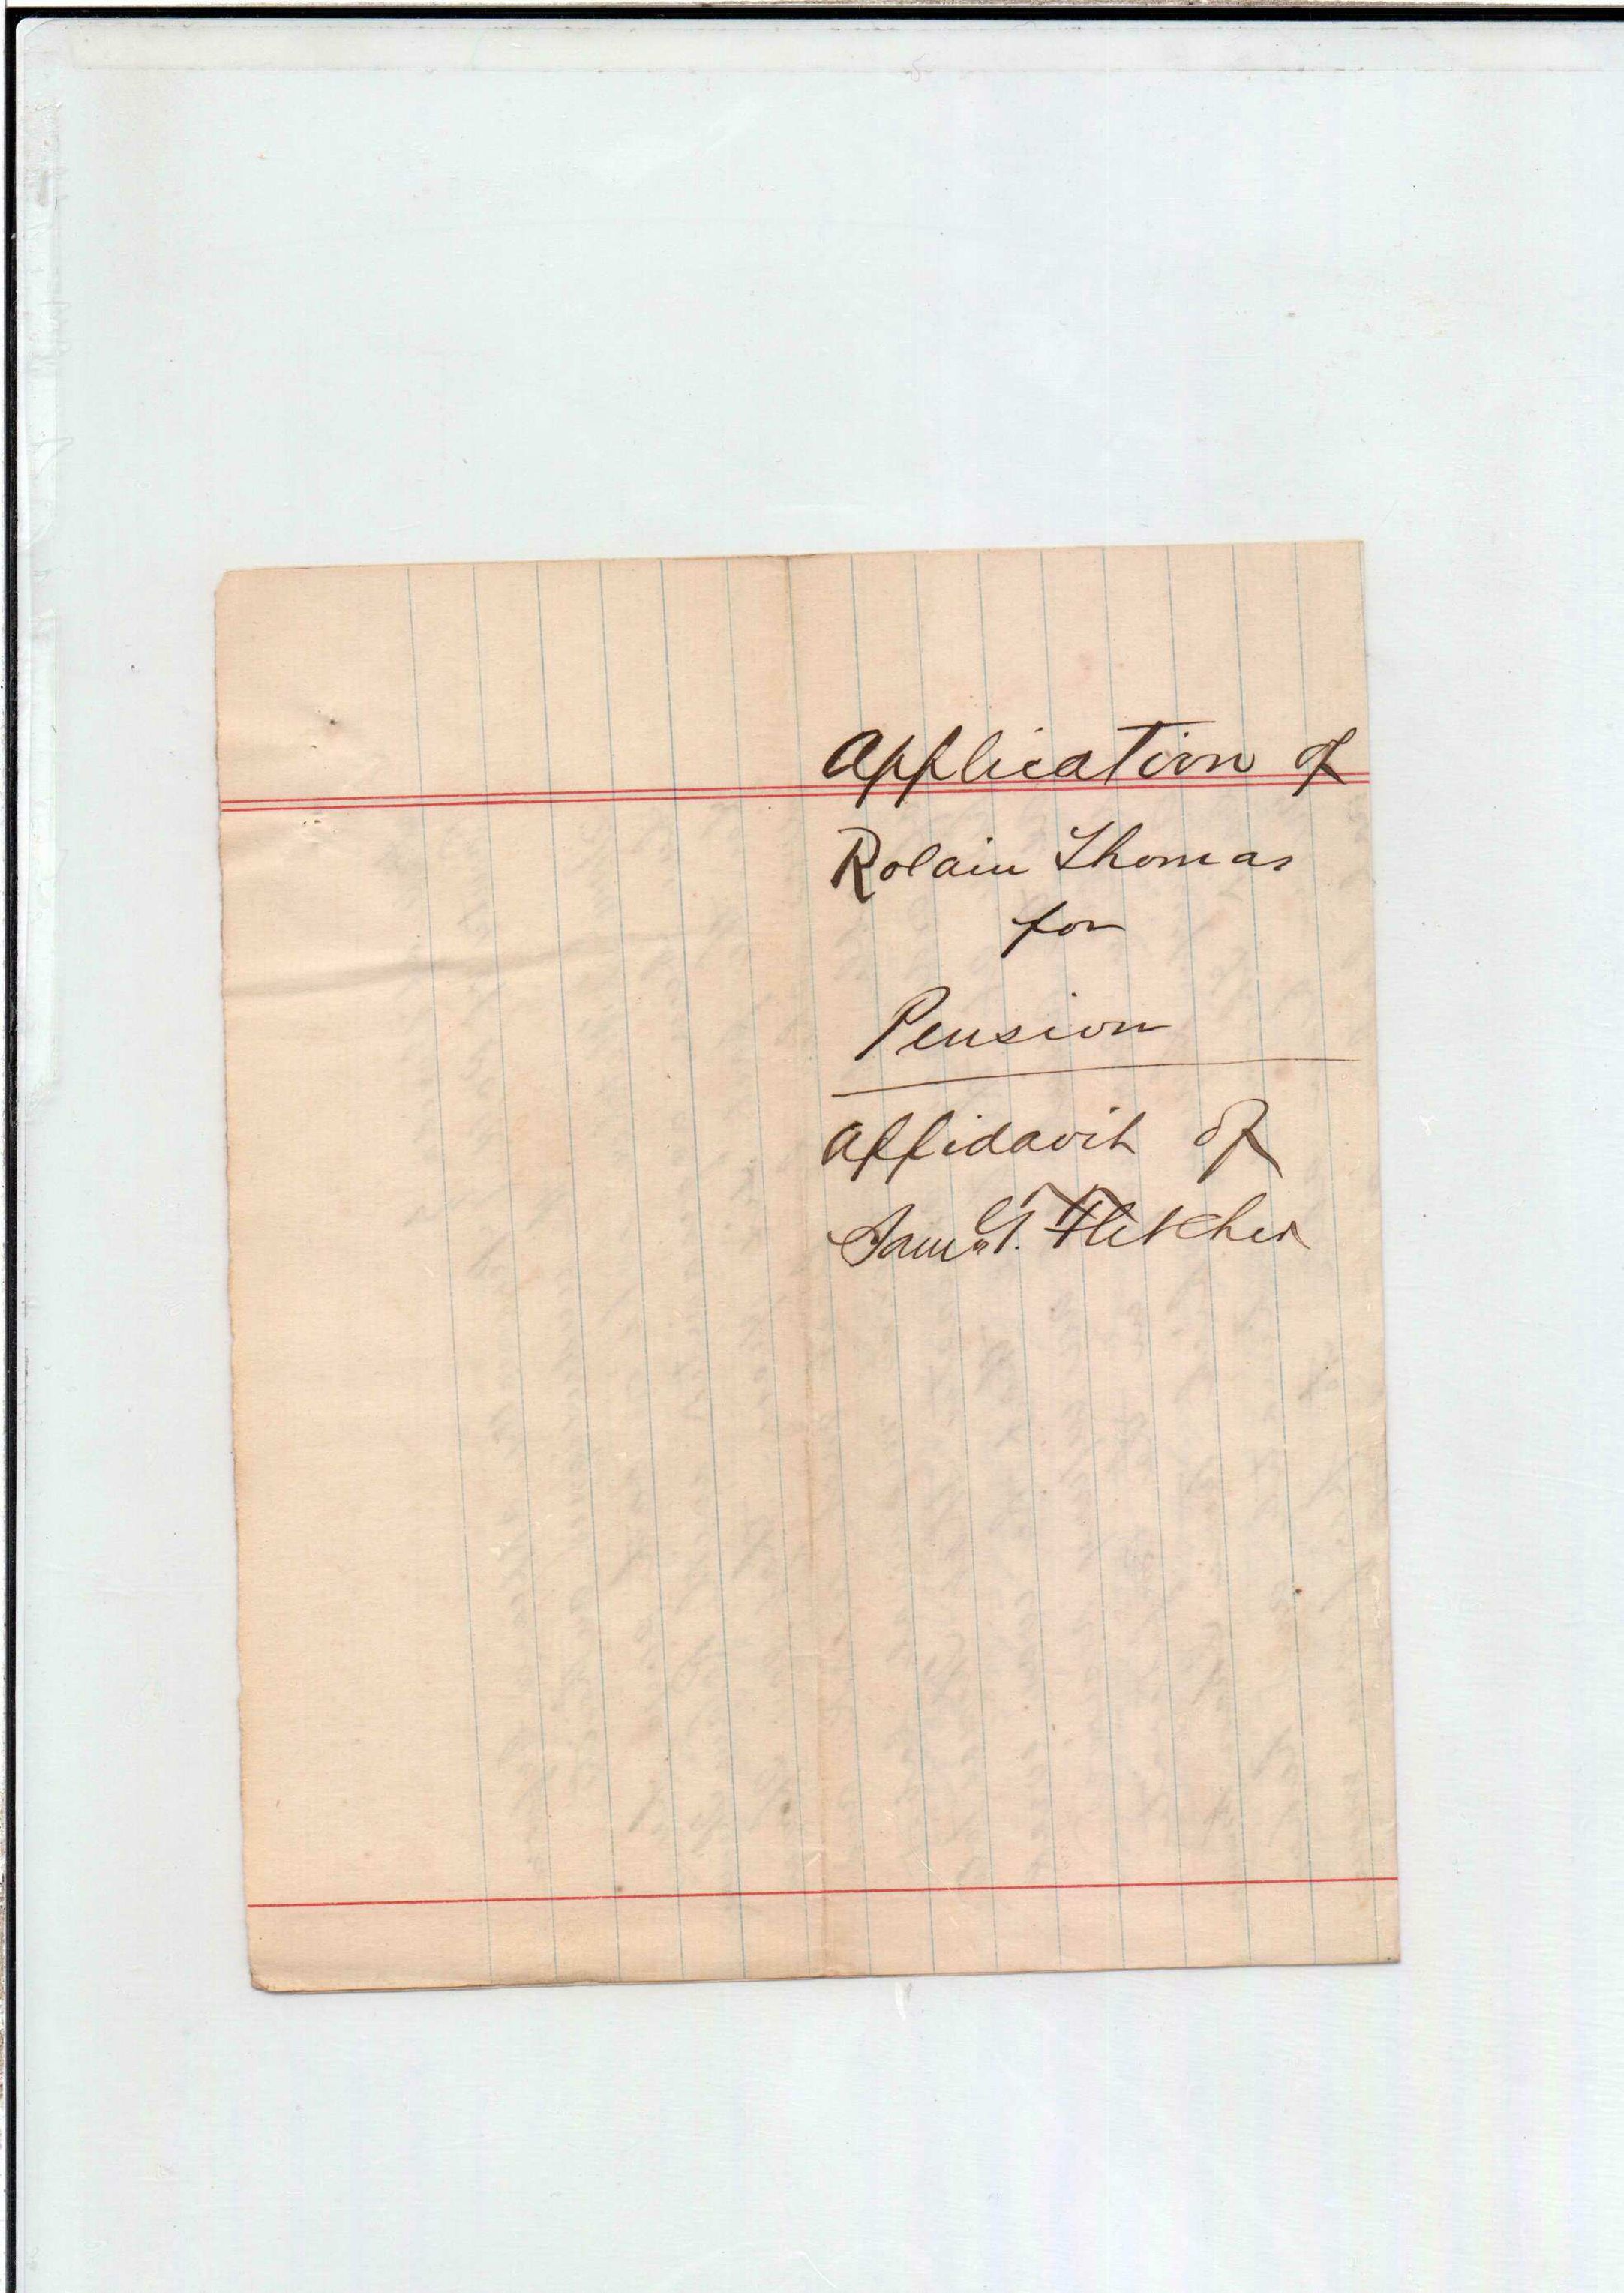 Application of
Rolain Thomas
for
Pension
Affidavit of
Sam G. Fletcher